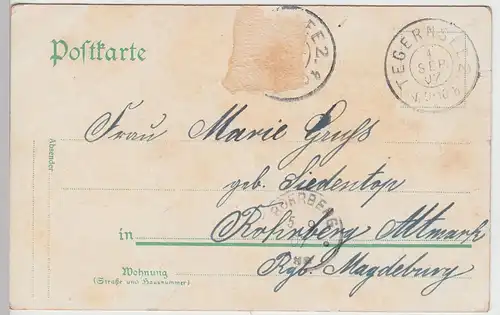 Postkarte
TEGERNSEE 2.
4
SEP
07
Frau Marie Gruß
geb. Siedentop
ROHRBERG
5
in Rohrberg Altmark
Rgb. Magdeburg
Absender
Wohnung
(Straße und Hausnummer)